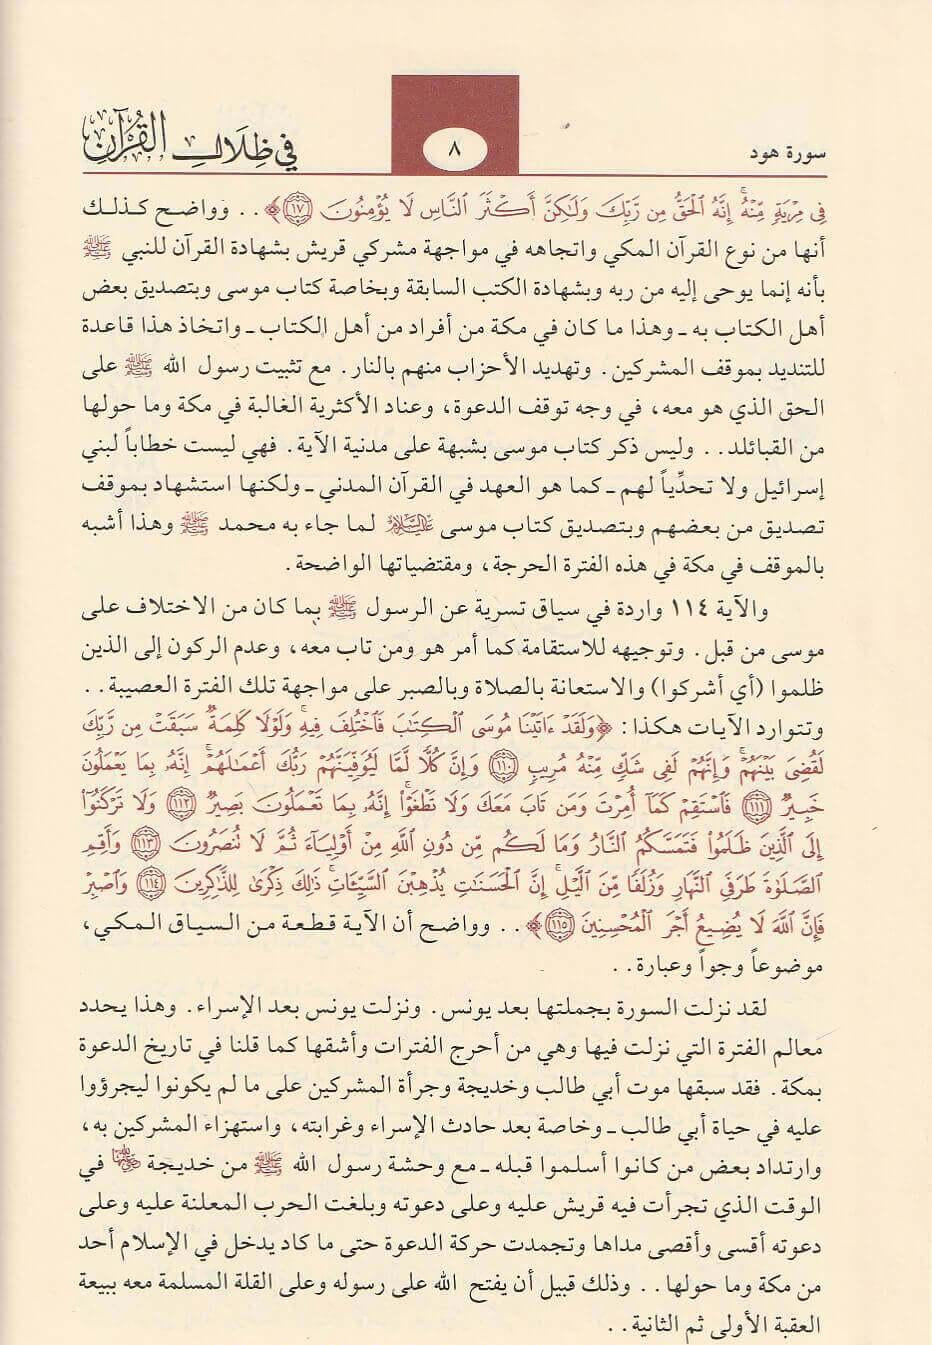 سورة هود
٨
في ظلال القرآن
فِي مِرْيَةٍ مِّنْهُ إِنَّهُ الْحَقُّ مِن رَّبِّكَ وَلَٰكِنَّ أَكْثَرَ النَّاسِ لَا يُؤْمِنُونَ ﴿١٧﴾﴾ . . وواضح كذلك
أنها من نوع القرآن المكي واتجاهه في مواجهة مشركي قريش بشهادة القرآن للنبي ﷺ
بأنه إنما يوحى إليه من ربه وبشهادة الكتب السابقة وبخاصة كتاب موسى وبتصديق بعض
أهل الكتاب به ـ وهذا ما كان في مكة من أفراد من أهل الكتاب ـ واتخاذ هذا قاعدة
للتنديد بموقف المشركين . وتهديد الأحزاب منهم بالنار . مع تثبيت رسول الله ﷺ على
الحق الذي هو معه، في وجه توقف الدعوة، وعناد الأكثرية الغالبة في مكة وما حولها
من القبائلد . . وليس ذكر كتاب موسى بشبهة على مدنية الآية . فهي ليست خطاباً لبني
إسرائيل ولا تحدِّياً لهم ـ كما هو العهد في القرآن المدني ـ ولكنها استشهاد بموقف
تصديق من بعضهم وبتصديق كتاب موسى عليه السلام لما جاء به محمد ﷺ وهذا أشبه
بالموقف في مكة في هذه الفترة الحرجة، ومقتضياتها الواضحة .
والآية ١١٤ واردة في سياق تسرية عن الرسول ﷺ بما كان من الاختلاف على
موسى من قبل . وتوجيهه للاستقامة كما أمر هو ومن تاب معه، وعدم الركون إلى الذين
ظلموا (أي أشركوا) والاستعانة بالصلاة وبالصبر على مواجهة تلك الفترة العصيبة . .
وتتوارد الآيات هكذا : ﴿وَلَقَدْ ءَاتَيْنَا مُوسَى الْكِتَٰبَ فَاخْتُلِفَ فِيهِ وَلَوْلَا كَلِمَةٌ سَبَقَتْ مِن رَّبِّكَ
لَقُضِىَ بَيْنَهُمْ وَإِنَّهُمْ لَفِى شَكٍّ مِّنْهُ مُرِيبٍ ﴿١١٠﴾ وَإِنَّ كُلًّا لَّمَّا لَيُوَفِّيَنَّهُمْ رَبُّكَ أَعْمَٰلَهُمْ إِنَّهُ بِمَا يَعْمَلُونَ
خَبِيرٌ ﴿١١١﴾ فَاسْتَقِمْ كَمَا أُمِرْتَ وَمَن تَابَ مَعَكَ وَلَا تَطْغَوْا إِنَّهُ بِمَا تَعْمَلُونَ بَصِيرٌ ﴿١١٢﴾ وَلَا تَرْكَنُوا
إِلَى الَّذِينَ ظَلَمُوا فَتَمَسَّكُمُ النَّارُ وَمَا لَكُم مِّن دُونِ اللَّهِ مِنْ أَوْلِيَاءَ ثُمَّ لَا تُنصَرُونَ ﴿١١٣﴾ وَأَقِمِ
الصَّلَوٰةَ طَرَفَىِ النَّهَارِ وَزُلَفًا مِّنَ الَّيْلِ إِنَّ الْحَسَنَٰتِ يُذْهِبْنَ السَّيِّئَاتِ ذَٰلِكَ ذِكْرَىٰ لِلذَّٰكِرِينَ ﴿١١٤﴾ وَاصْبِرْ
فَإِنَّ اللَّهَ لَا يُضِيعُ أَجْرَ الْمُحْسِنِينَ ﴿١١٥﴾﴾ . . وواضح أن الآية قطعة من السياق المكي،
موضوعاً وجواً وعبارة . .
لقد نزلت السورة بجملتها بعد يونس . ونزلت يونس بعد الإسراء . وهذا يحدد
معالم الفترة التي نزلت فيها وهي من أحرج الفترات وأشقها كما قلنا في تاريخ الدعوة
بمكة . فقد سبقها موت أبي طالب وخديجة وجرأة المشركين على ما لم يكونوا ليجرؤوا
عليه في حياة أبي طالب ـ وخاصة بعد حادث الإسراء وغرابته، واستهزاء المشركين به،
وارتداد بعض من كانوا أسلموا قبله ـ مع وحشة رسول الله ﷺ من خديجة رضي الله عنها في
الوقت الذي تجرأت فيه قريش عليه وعلى دعوته وبلغت الحرب المعلنة عليه وعلى
دعوته أقسى وأقصى مداها وتجمدت حركة الدعوة حتى ما كاد يدخل في الإسلام أحد
من مكة وما حولها . . وذلك قبيل أن يفتح الله على رسوله وعلى القلة المسلمة معه ببيعة
العقبة الأولى ثم الثانية . .